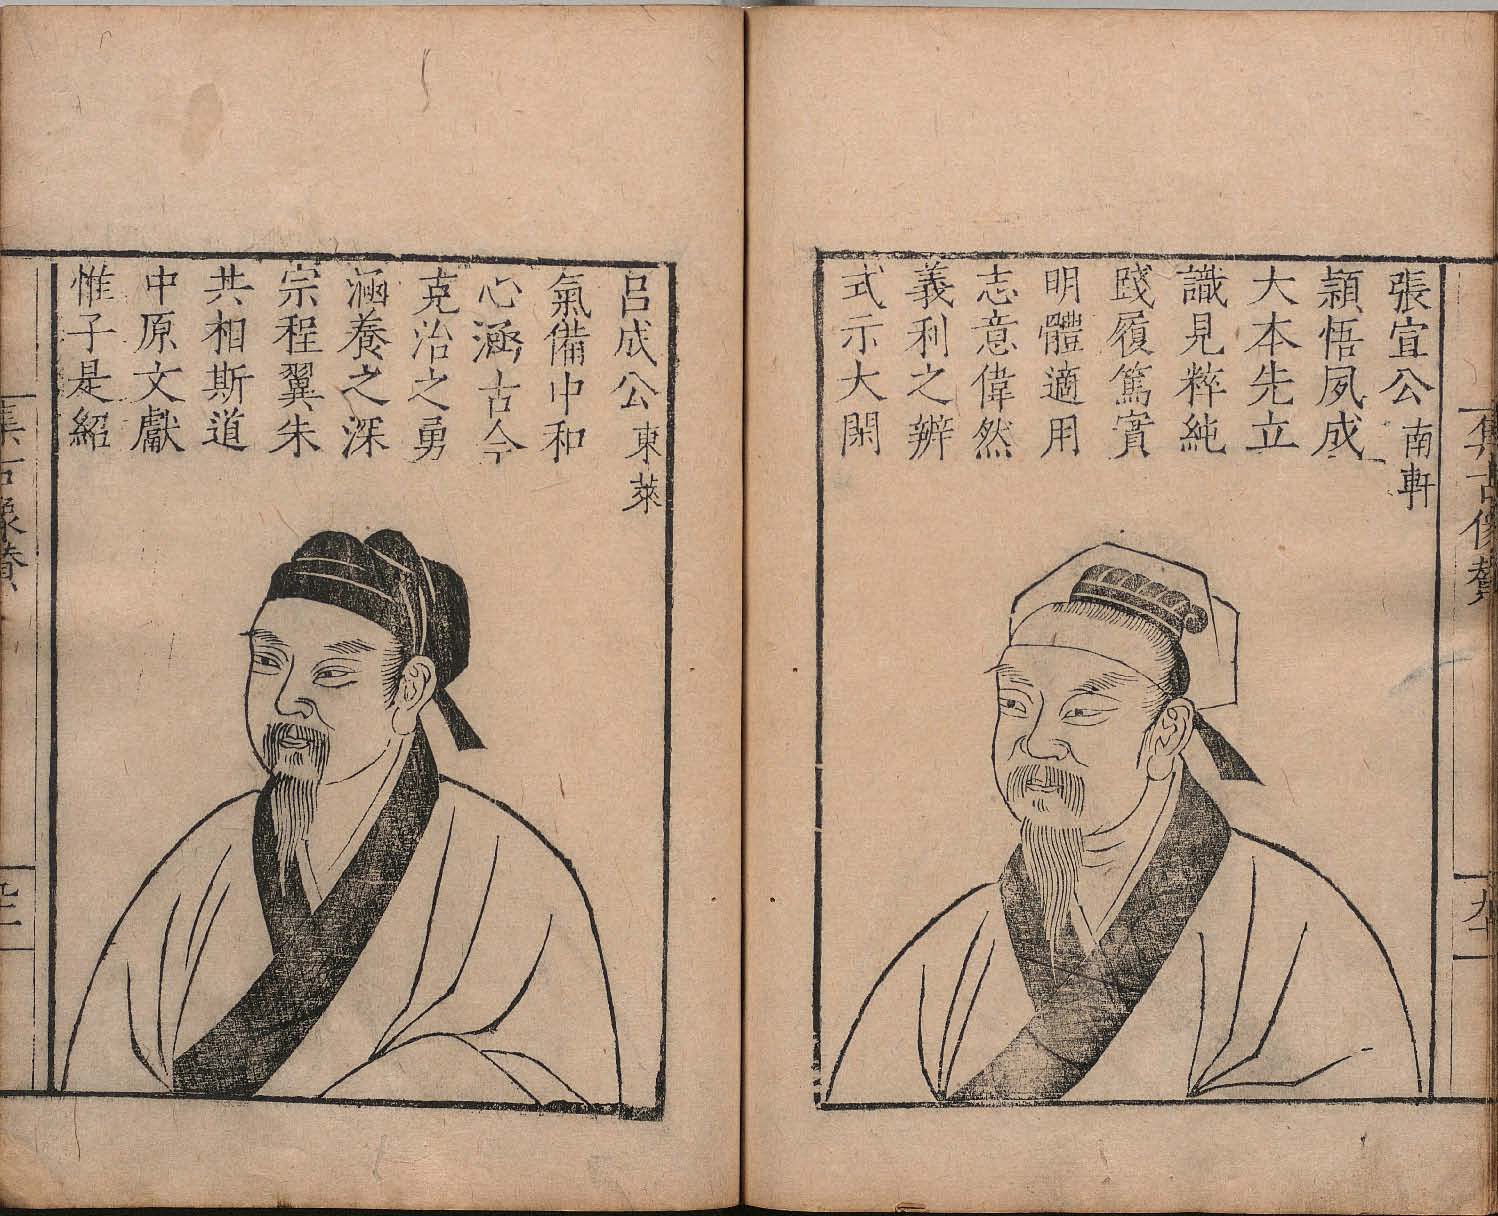 張宣公南軒
穎悟夙成
大本先立
識見粹純
踐履篤實
明體適用
志意偉然
義利之辨
式示大閑
呂成公東萊
氣備中和
心涵古今
克治之勇
涵養之深
宗程翼朱
共相斯道
中原文獻
惟子是紹
集古像贊